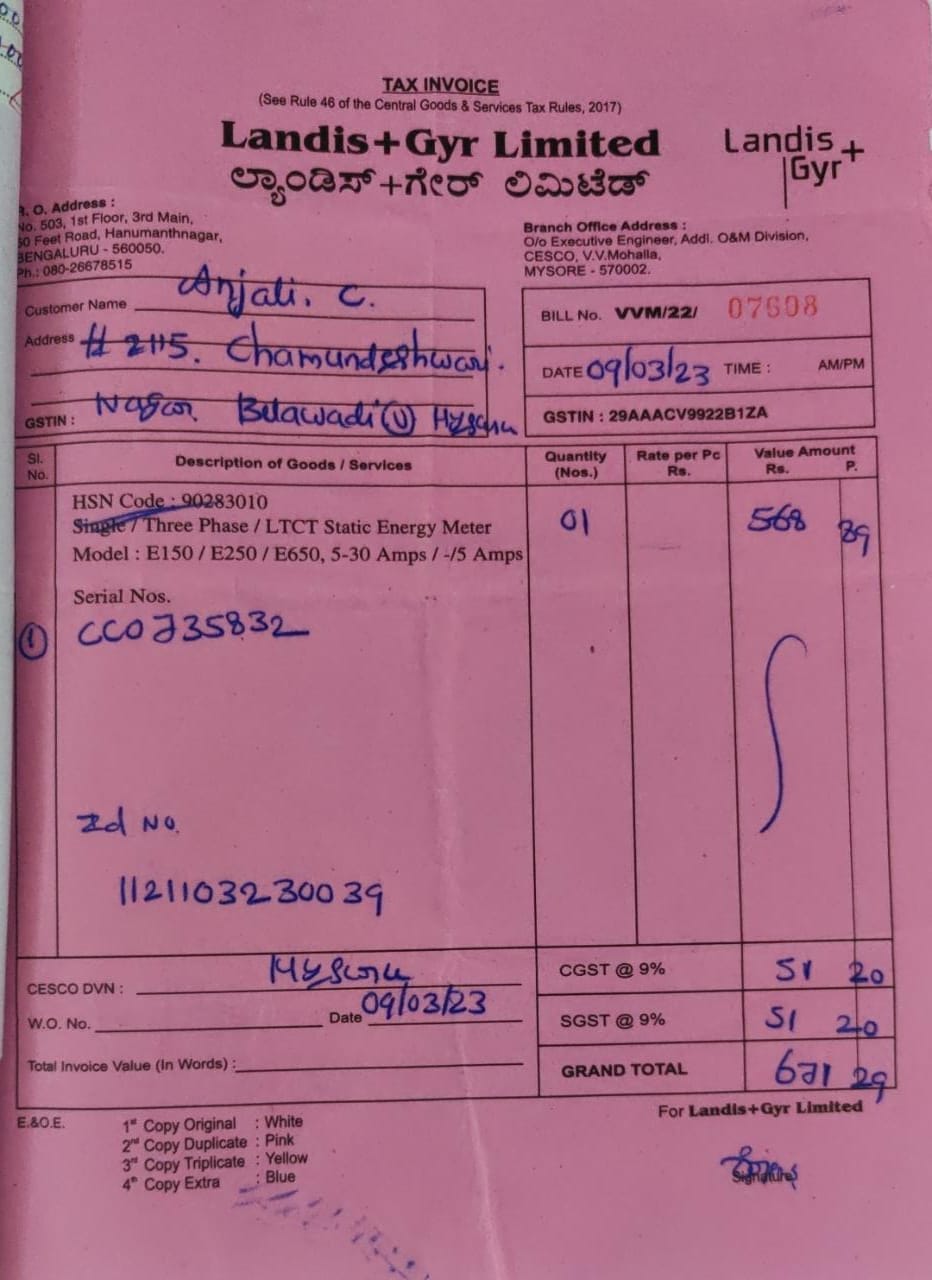 TAX INVOICE
(See Rule 46 of the Central Goods & Services Tax Rules, 2017)
Landis+Gyr Limited
Landis
Gyr+
ಲ್ಯಾಂಡಿಸ್+ಗೇರ್ ಲಿಮಿಟೆಡ್
R. O. Address :
No. 503, 1st Floor, 3rd Main,
Feet Road, Hanumanthnagar,
BENGALURU - 560050.
Ph.: 080-26678515
Branch Office Address :
O/o Executive Engineer, Addl. O&M Division,
CESCO, V.V.Mohalla,
MYSORE - 570002.
Customer Name Anjali. C.
Address # 2115. Chamundeshwari.
Nagar Belawadi (V) Mysuru
GSTIN :
BILL No. VVM/22/ 07608
DATE 09/03/23 TIME : AM/PM
GSTIN : 29AAACV9922B1ZA
Sl. No. Description of Goods / Services Quantity (Nos.) Rate per Pc Rs. Value Amount Rs. P.
HSN Code : 90283010
Single / Three Phase / LTCT Static Energy Meter 01 568 89
Model : E150 / E250 / E650, 5-30 Amps / -/5 Amps
Serial Nos.
① CC0735832
Id No.
1121103230039
CESCO DVN : Mysuru
W.O. No. Date 09/03/23
Total Invoice Value (In Words) :
CGST @ 9% 51 20
SGST @ 9% 51 20
GRAND TOTAL 671 29
E.&O.E.
1st Copy Original : White
2nd Copy Duplicate : Pink
3rd Copy Triplicate : Yellow
4th Copy Extra : Blue
For Landis+Gyr Limited
Signature